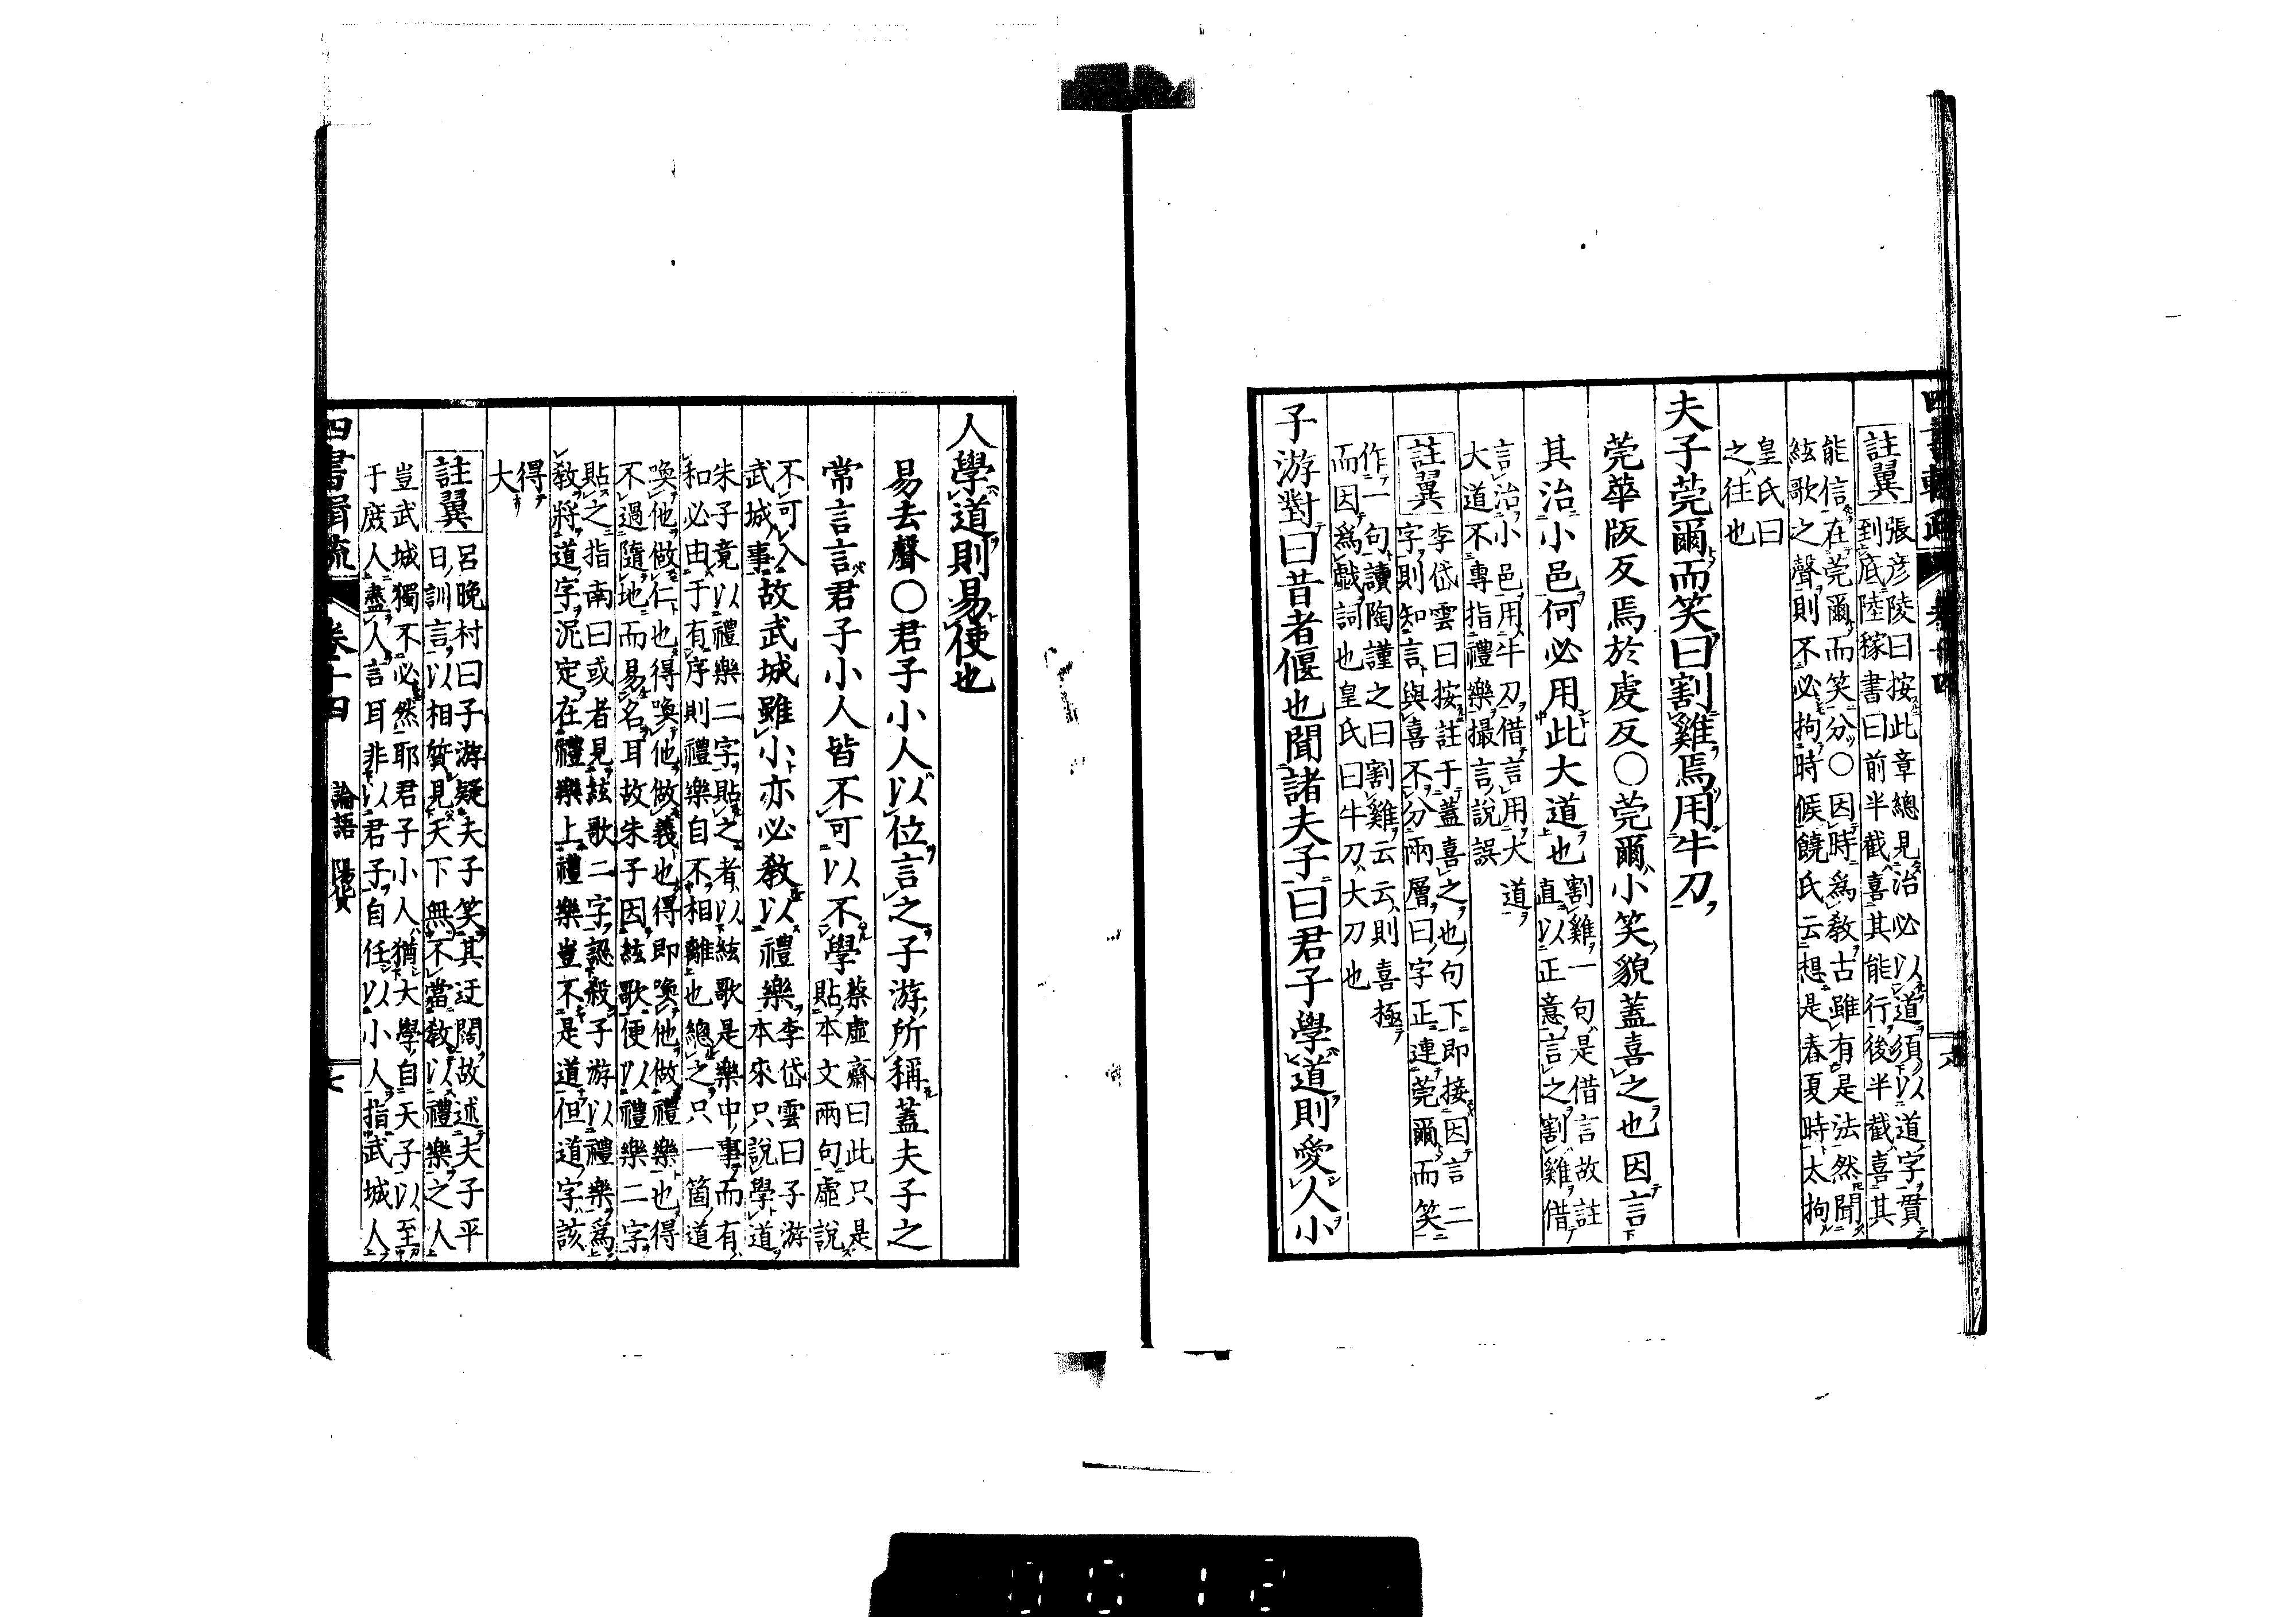 四書輯疏 卷十四 六
註翼 張彦陵曰按此章總見治必以道須以道字貫
到底陸稼書曰前半截喜其能行後半截喜其
能信在莞爾而笑分○因時爲教古雖有是法然聞
絃歌之聲則不必拘時候饒氏云想是春夏時太拘
皇氏曰
之往也
夫子莞爾而笑曰割雞焉用牛刀
莞華版反焉於虔反○莞爾小笑貌蓋喜之也因言
其治小邑何必用此大道也
割雞一句是借言故註
直以正意言之割雞借
言治小邑用牛刀借言用大道
大道不專指禮樂撮言說誤
註翼 李岱雲曰按註于蓋喜之也句下即接因言二
字則知言與喜不分兩層曰字正連莞爾而笑
作一句讀陶謹之曰割雞云云則喜極
而因爲戲詞也皇氏曰牛刀大刀也
子游對曰昔者偃也聞諸夫子曰君子學道則愛人小
人學道則易使也
易去聲○君子小人以位言之子游所稱蓋夫子之
常言言君子小人皆不可以不學
蔡虛齋曰此只是
貼本文兩句虛說
不可入
武城事
故武城雖小亦必教以禮樂
李岱雲曰子游
本來只說學道
朱子竟以禮樂二字貼之者以絃歌是樂中事而有
和必由于有序則禮樂自不相離也總之只一箇道
喚他做仁也得喚他做義也得即喚他做禮樂也得
不過隨地而易名耳故朱子因絃歌便以禮樂二字
貼之指南曰或者見絃歌二字認殺子游以禮樂爲
教將道字泥定在禮樂上禮樂豈不是道但道字該
得
大
註翼 呂晩村曰子游疑夫子笑其迂闊故述夫子平
日訓言以相質見天下無不當教以禮樂之人
豈武城獨不必然耶君子小人猶大學自天子以至
于庶人盡人言耳非以君子自任以小人指武城人
四書輯疏 卷十四 論語 陽貨 七
0012